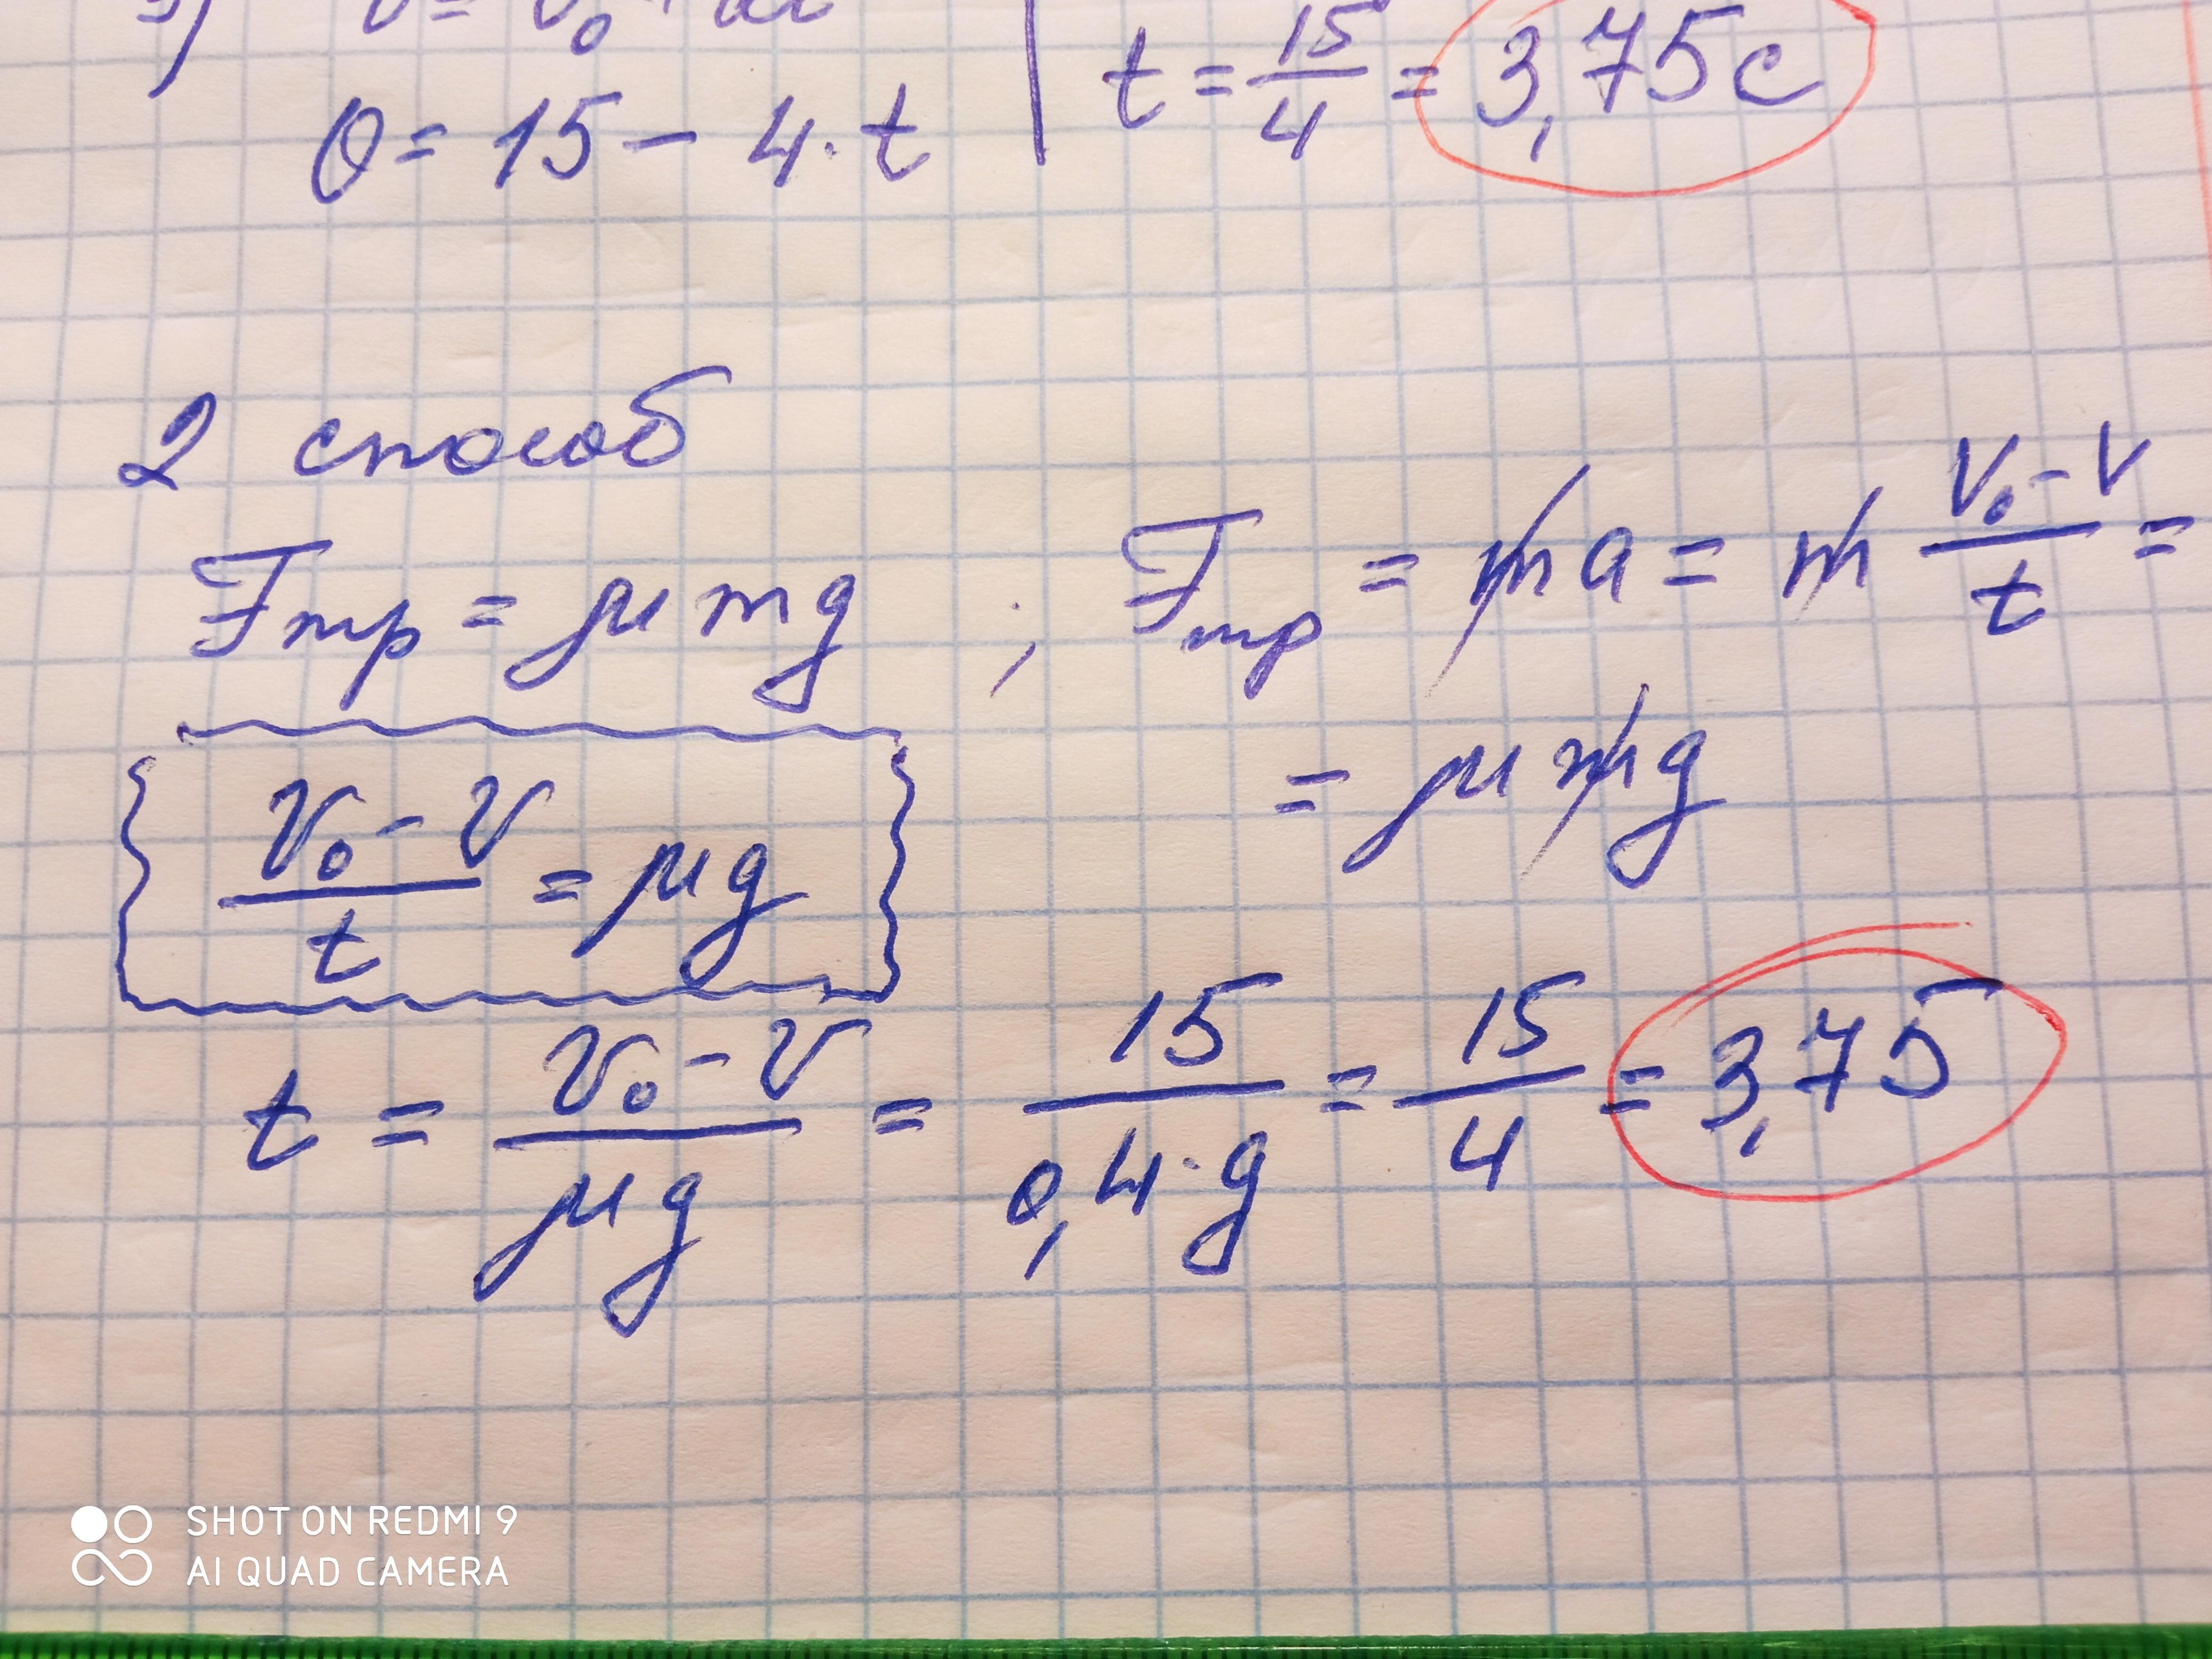 3) v = v₀ + at
t = 15/4 = 3,75 c
0 = 15 - 4 · t
2 способ
Fтр = μmg ; Fтр = ma = m (V₀ - V)/t =
= μmg
(v₀ - v)/t = μg
t = (v₀ - v)/μg = 15/(0,4 · g) = 15/4 = 3,75
SHOT ON REDMI 9
AI QUAD CAMERA